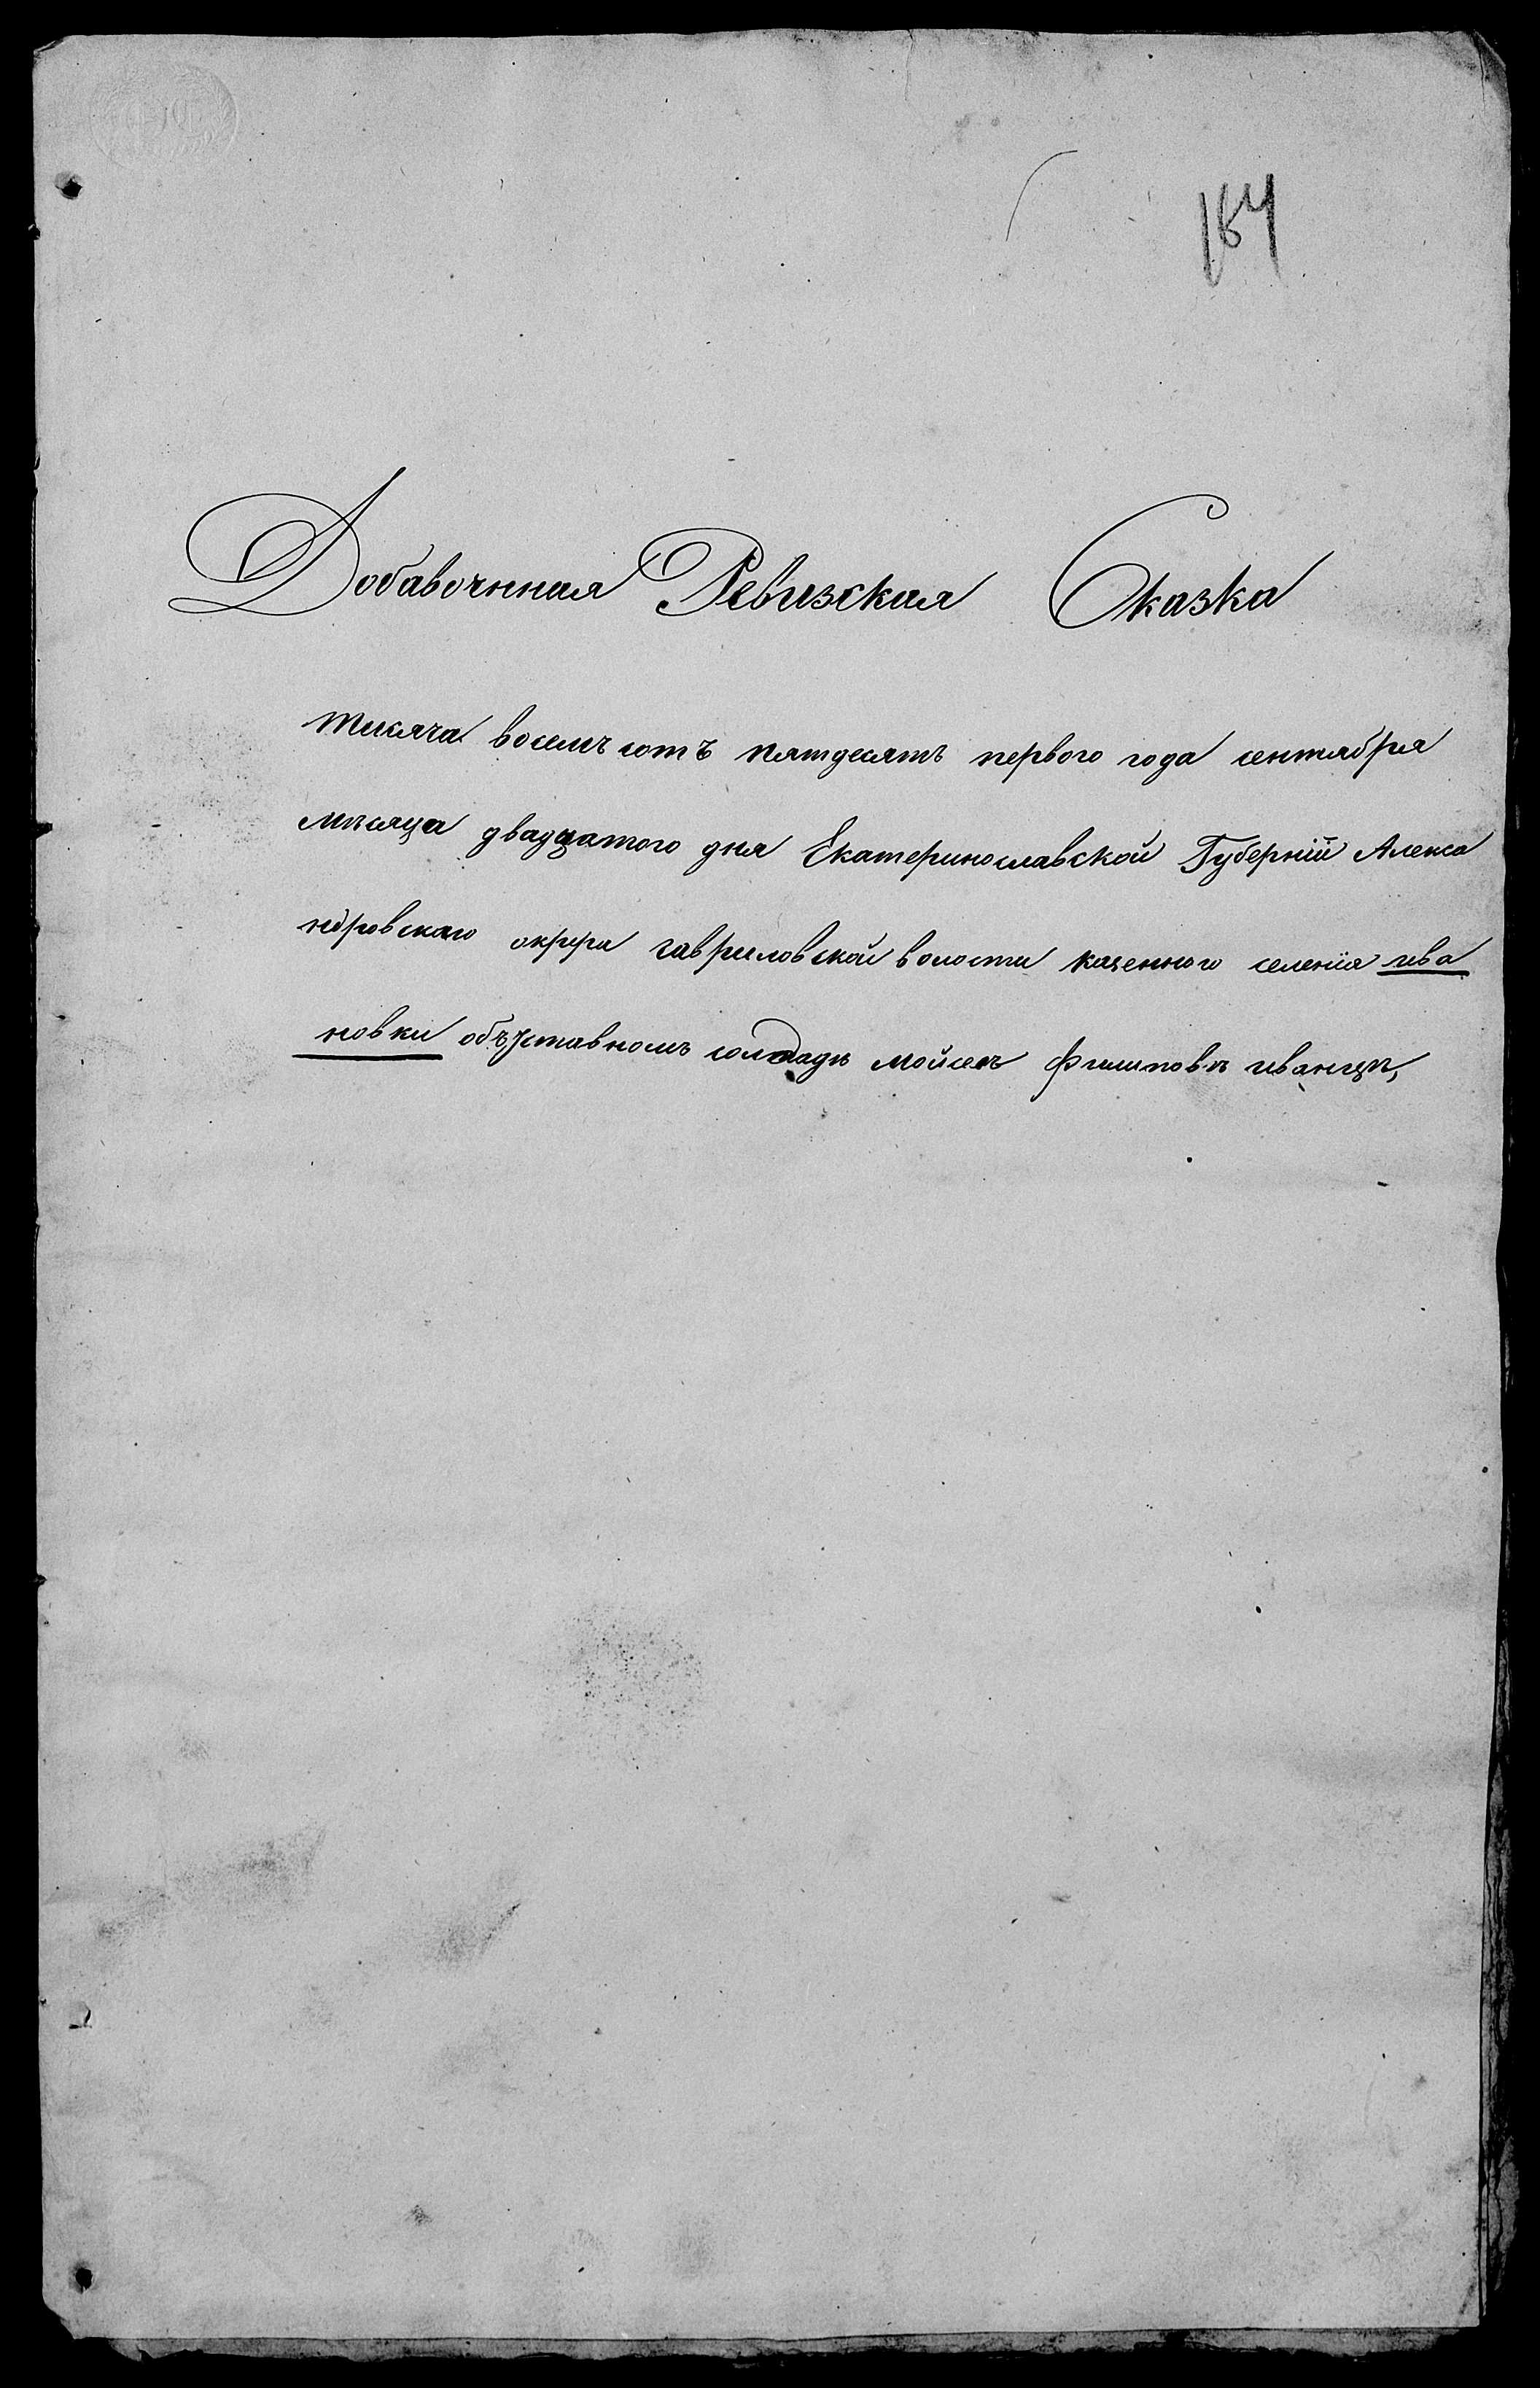 184
Добавочнная Ревизская Сказка
тисяча восемъ сотъ пятдесятъ первого года сентября
мѣсяца двадцатого дня Екатеринославской Губерніи Алекса
ндровскаго округа гавриловской волости казенного селенія ива
новки объ уставномъ солдадѣ мойсеѣ Филиповѣ иванцѣ,